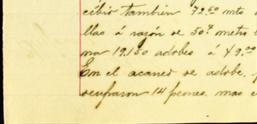 cibió también 72.50 mts
llas á razón se 50.º metro
na 19.150 adobes á $9.00
En el acarreo se adobe,
ocuparon 14 peones, mas